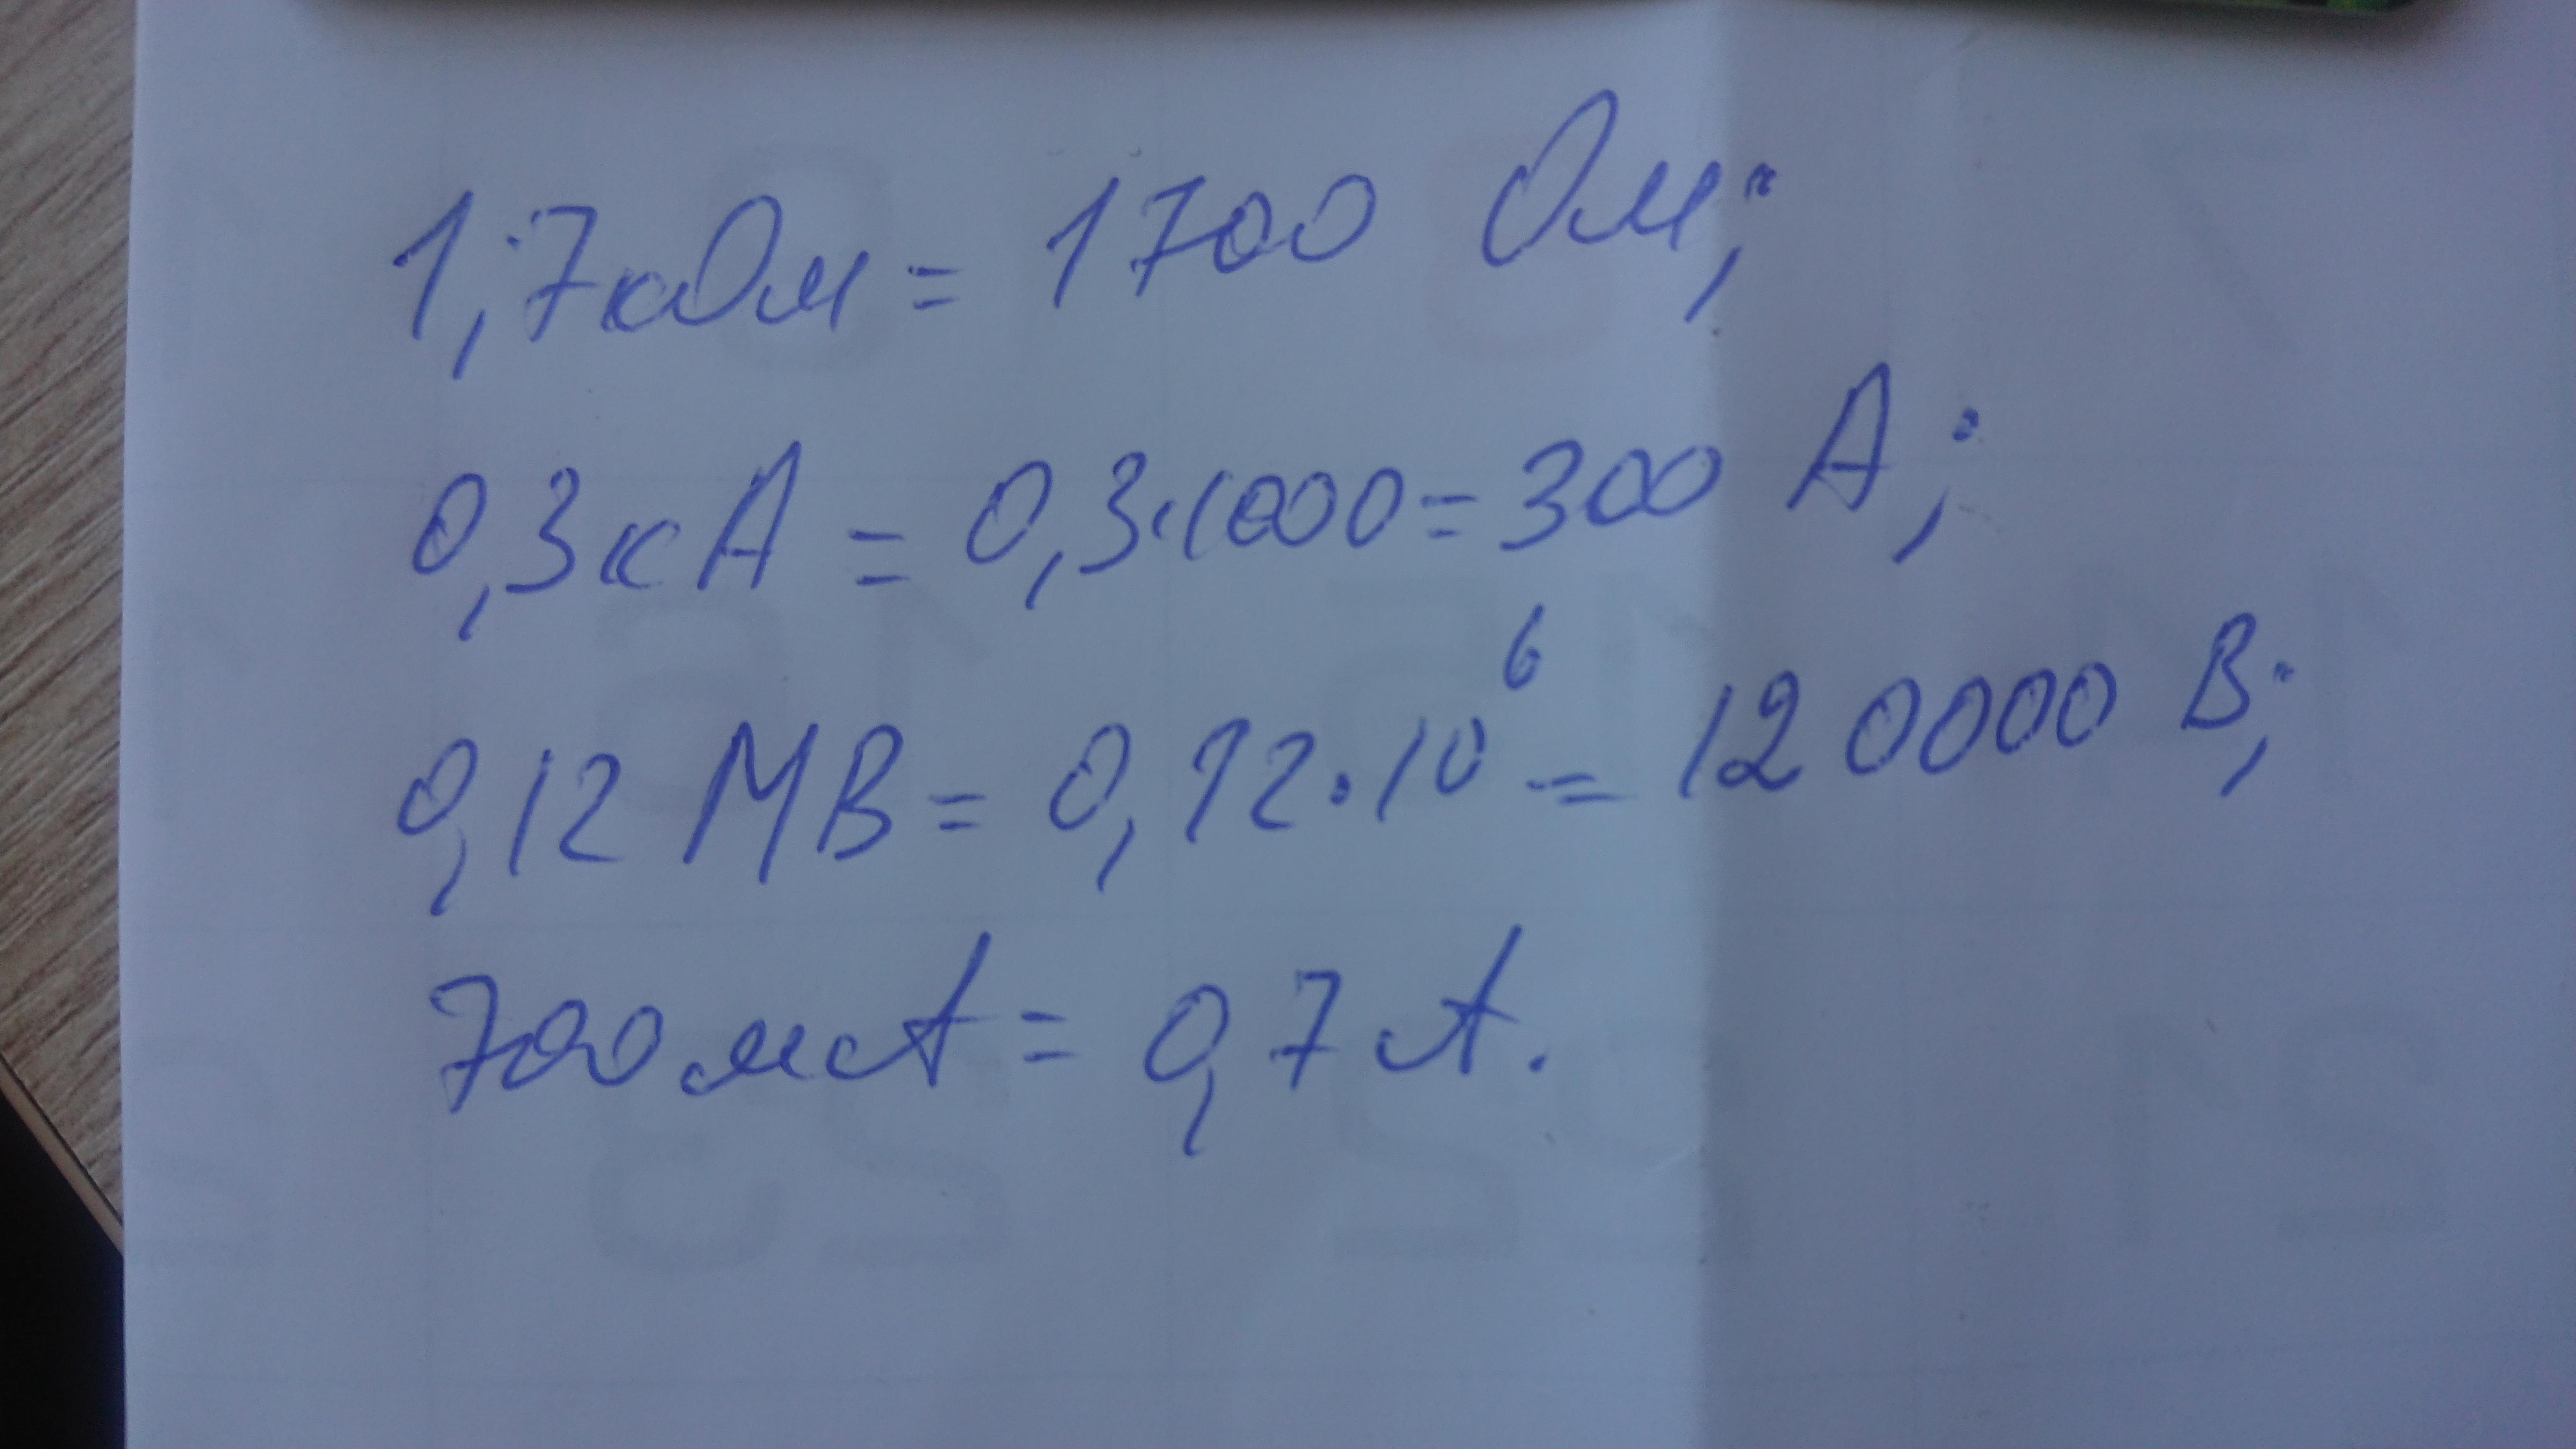 1,7кОм = 1700 Ом;
0,3кА = 0,3·1000 = 300 А;
0,12 МВ = 0,12·10⁶ = 120000 В;
700мА = 0,7 А.